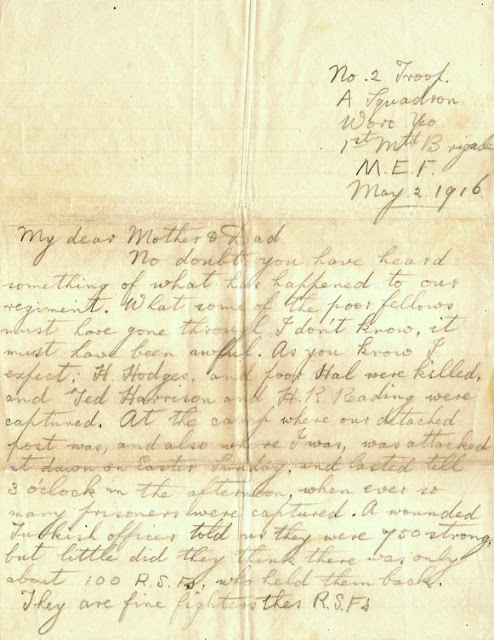 No. 2 Troop.
A Squadron
Worc Yeo.
1st Mtd Brigade
M.E.F.
May 2. 1916
My dear Mother & Dad
No doubt you have heard
something of what has happened to our
regiment. What some of the poor fellows
must have gone through I don't know, it
must have been awful. As you know I
expect; H. Hodges, and poor Hal were killed,
and Ted Harrison and H. R. Reading were
captured. At the camp where our detached
post was, and also where I was, was attacked
at dawn on Easter Sunday, and lasted till
3 o'clock in the afternoon, when ever so
many prisoners were captured. A wounded
Turkish officer told us they were 750 strong,
but little did they think there was only
about 100 R.S.Fs, who held them back.
They are fine fighters the R.S.Fs